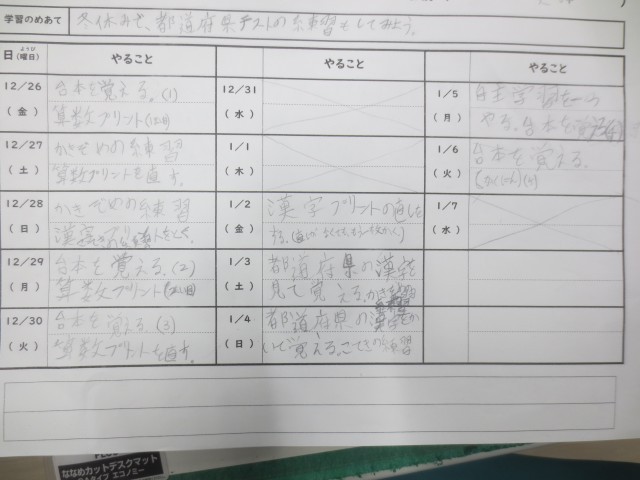 学習のめあて 冬休みで、都道府県テストの練習もしてみよう。
日(曜日) ようび やること やること やること
12/26 (金) 台本を覚える。(1)
算数プリント
12/27 (土) かきぞめの練習
算数プリントを直す。
12/28 (日) かきぞめの練習
漢字プリント
12/29 (月) 台本を覚える。(2)
算数プリント
12/30 (火) 台本を覚える。(3)
算数プリントを直す。
12/31 (水)
1/1 (木)
1/2 (金) 漢字プリントの直しを
する。
1/3 (土) 都道府県の漢字を
見て覚える。
1/4 (日) 都道府県の漢字をか
いて覚える。 の練習
1/5 (月) 自主学習を一つ
やる。台本を覚える
1/6 (火) 台本を覚える。
1/7 (水)
ななめカットデスクマット
エコノミー